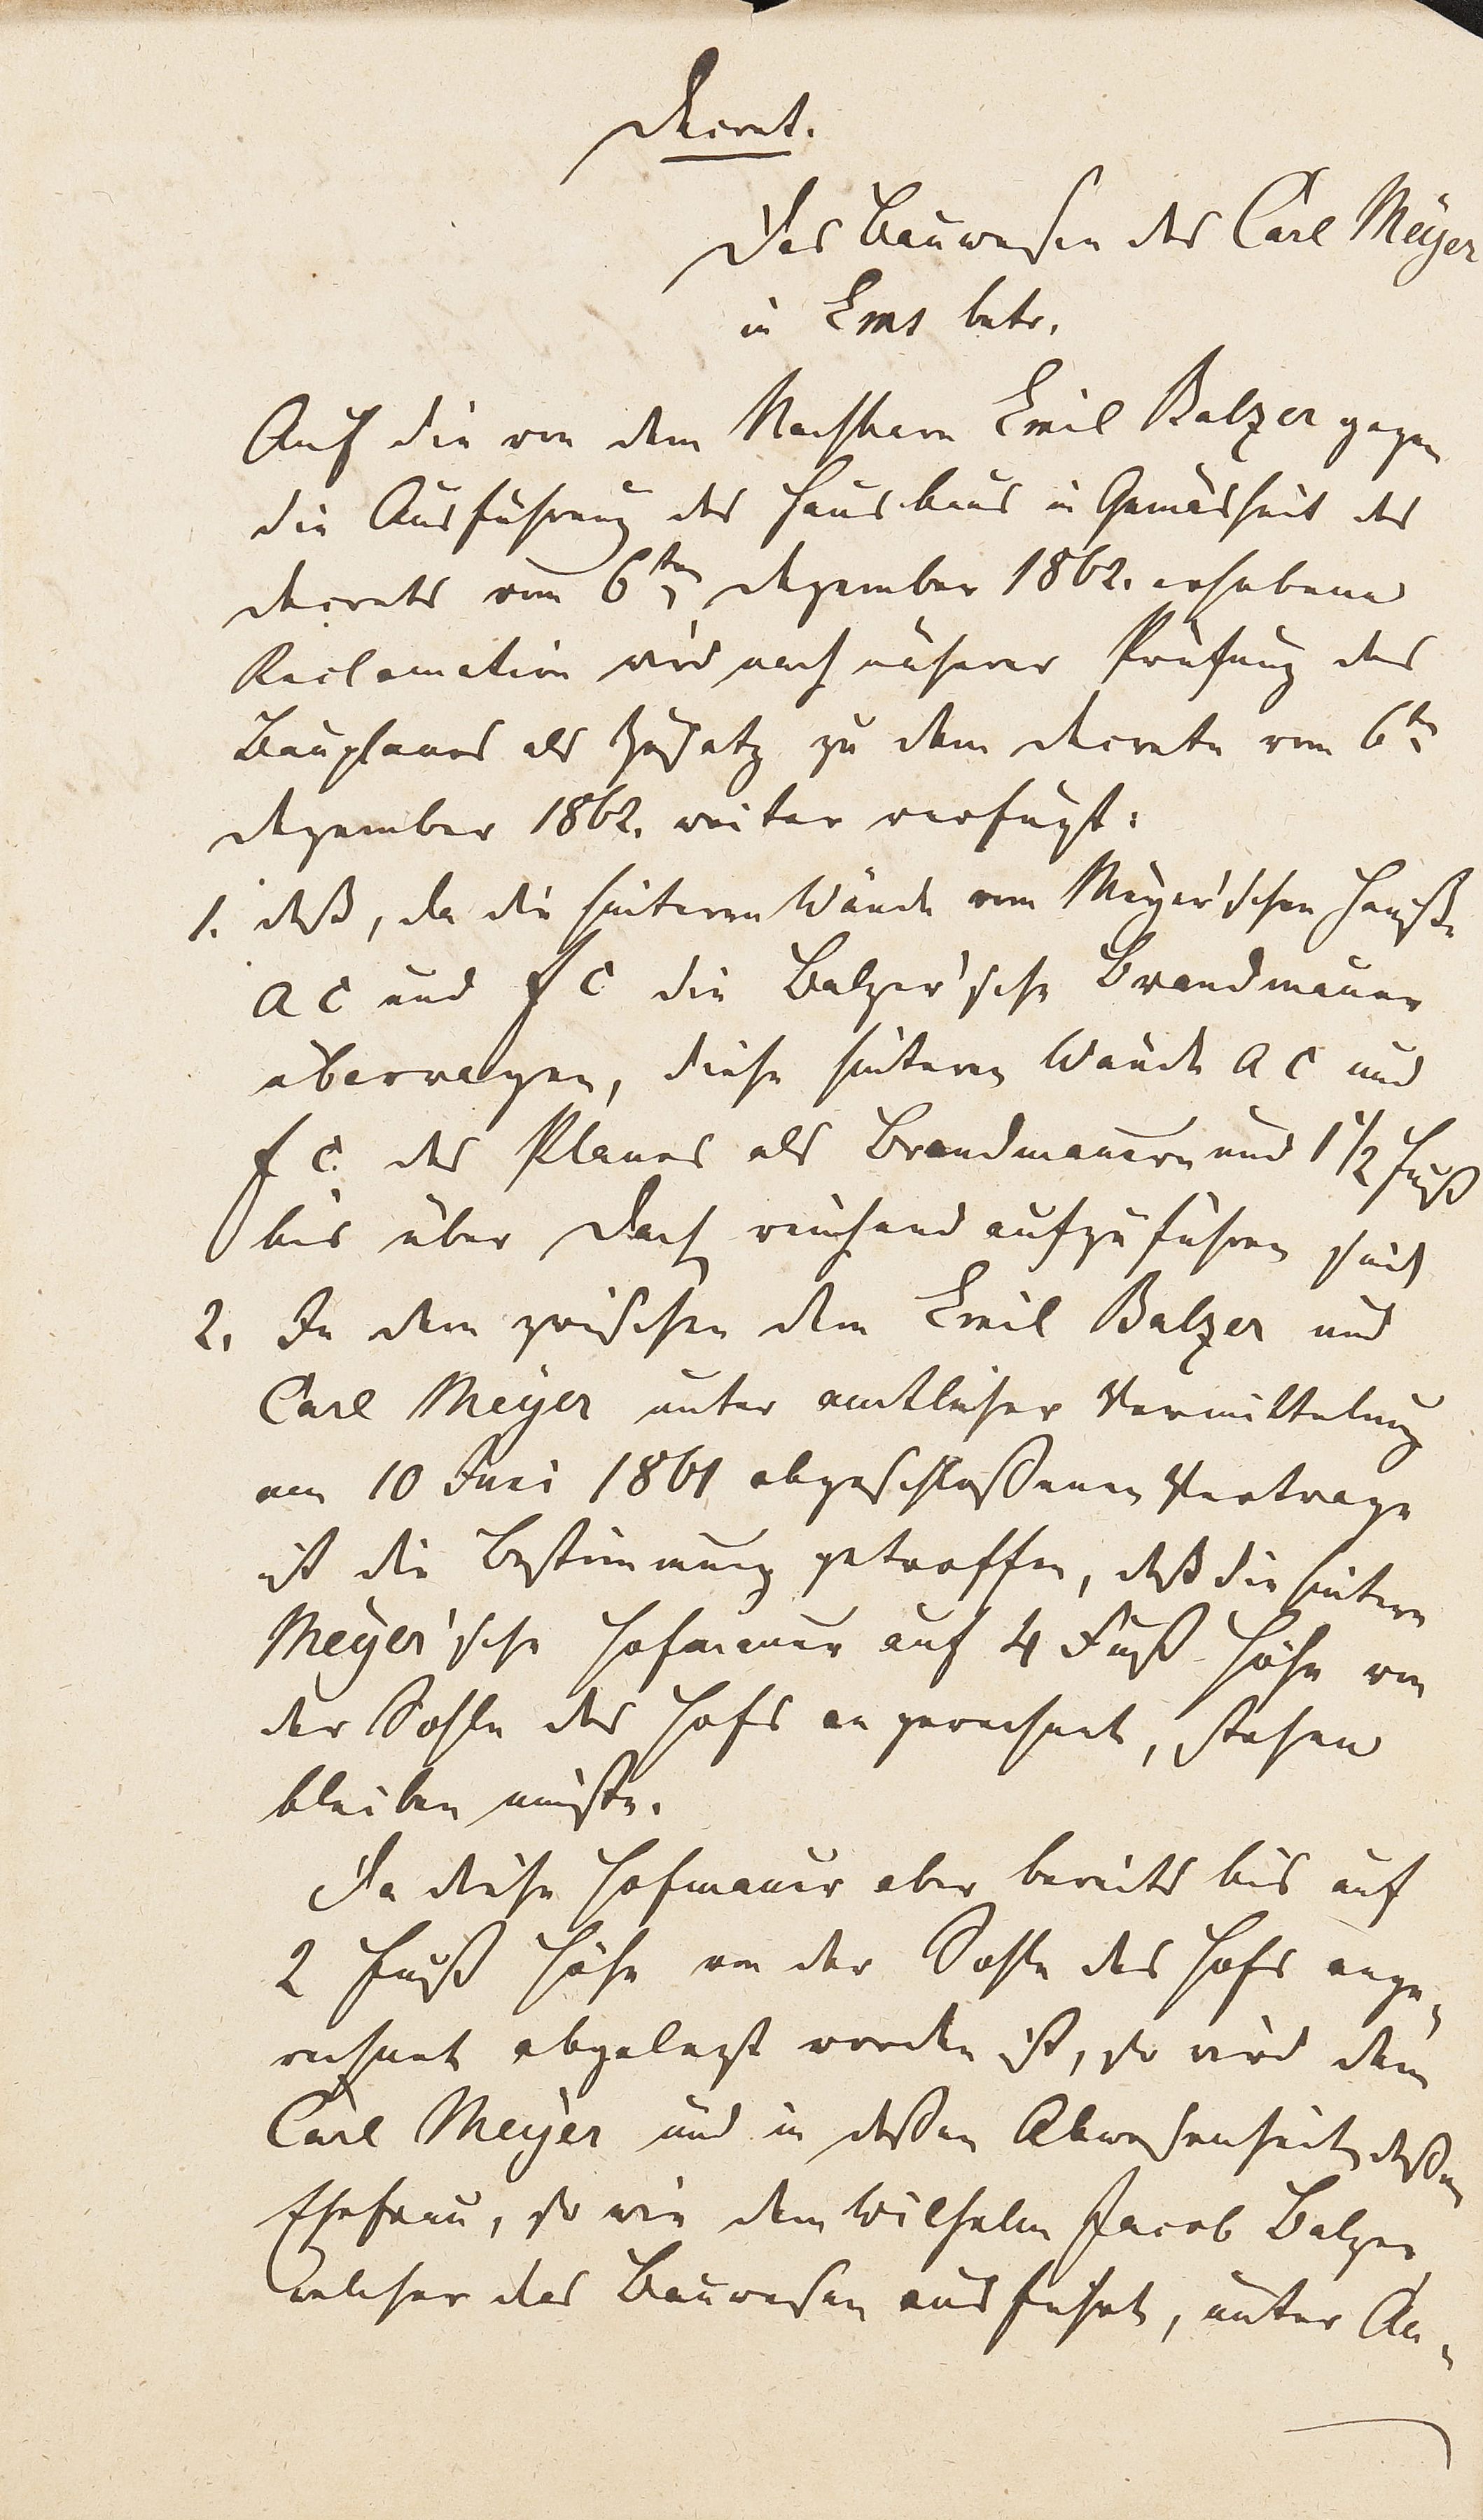 Decret.
Das Bauwesen des Carl Meÿer
in Ems betr.
Auf die von dem Nachbarn Emil Balzer gegen
die Ausführung des Hausbaus in Gemäsheit des
Decrets vom 6ten Dezember 1862. erhobene
Reclamation wird nach näherer Prüfung des
Bauplanes als Zusatz zu dem Decrete vom 6ten
Dezember 1862. weiter verfügt:
1. daß, da die hinteren Wände vom Meÿer'schen Hause
a c und f c die Balzer'sche Brandmauer
überragen, diese hinteren Wände a c und
f c des Planes als Brandmauern und 1 1/2 Fuß
bis über Dach reichend aufzuführen sind
2. In dem zwischen dem Emil Balzer und
Carl Meÿer unter amtlicher Vermittelung
am 10 Juni 1861 abgeschloßenen Vertrage
ist die Bestimmung getroffen, daß die hintere
Meÿer'sche Hofmauer auf 4 Fuß Höhe von
der Sohle des Hofs an gerechnet, stehen
bleiben müßte.
Da diese Hofmauer aber bereits bis auf
2 Fuß Höhe von der Sohle des Hofs ange-
rechnet abgelegt worden ist, so wird dem
Carl Meÿer und in deßen Abwesenheit deßen
Ehefrau, so wie dem Wilhelm Jacob Balzer
welcher das Bauwesen ausführt, unter An-